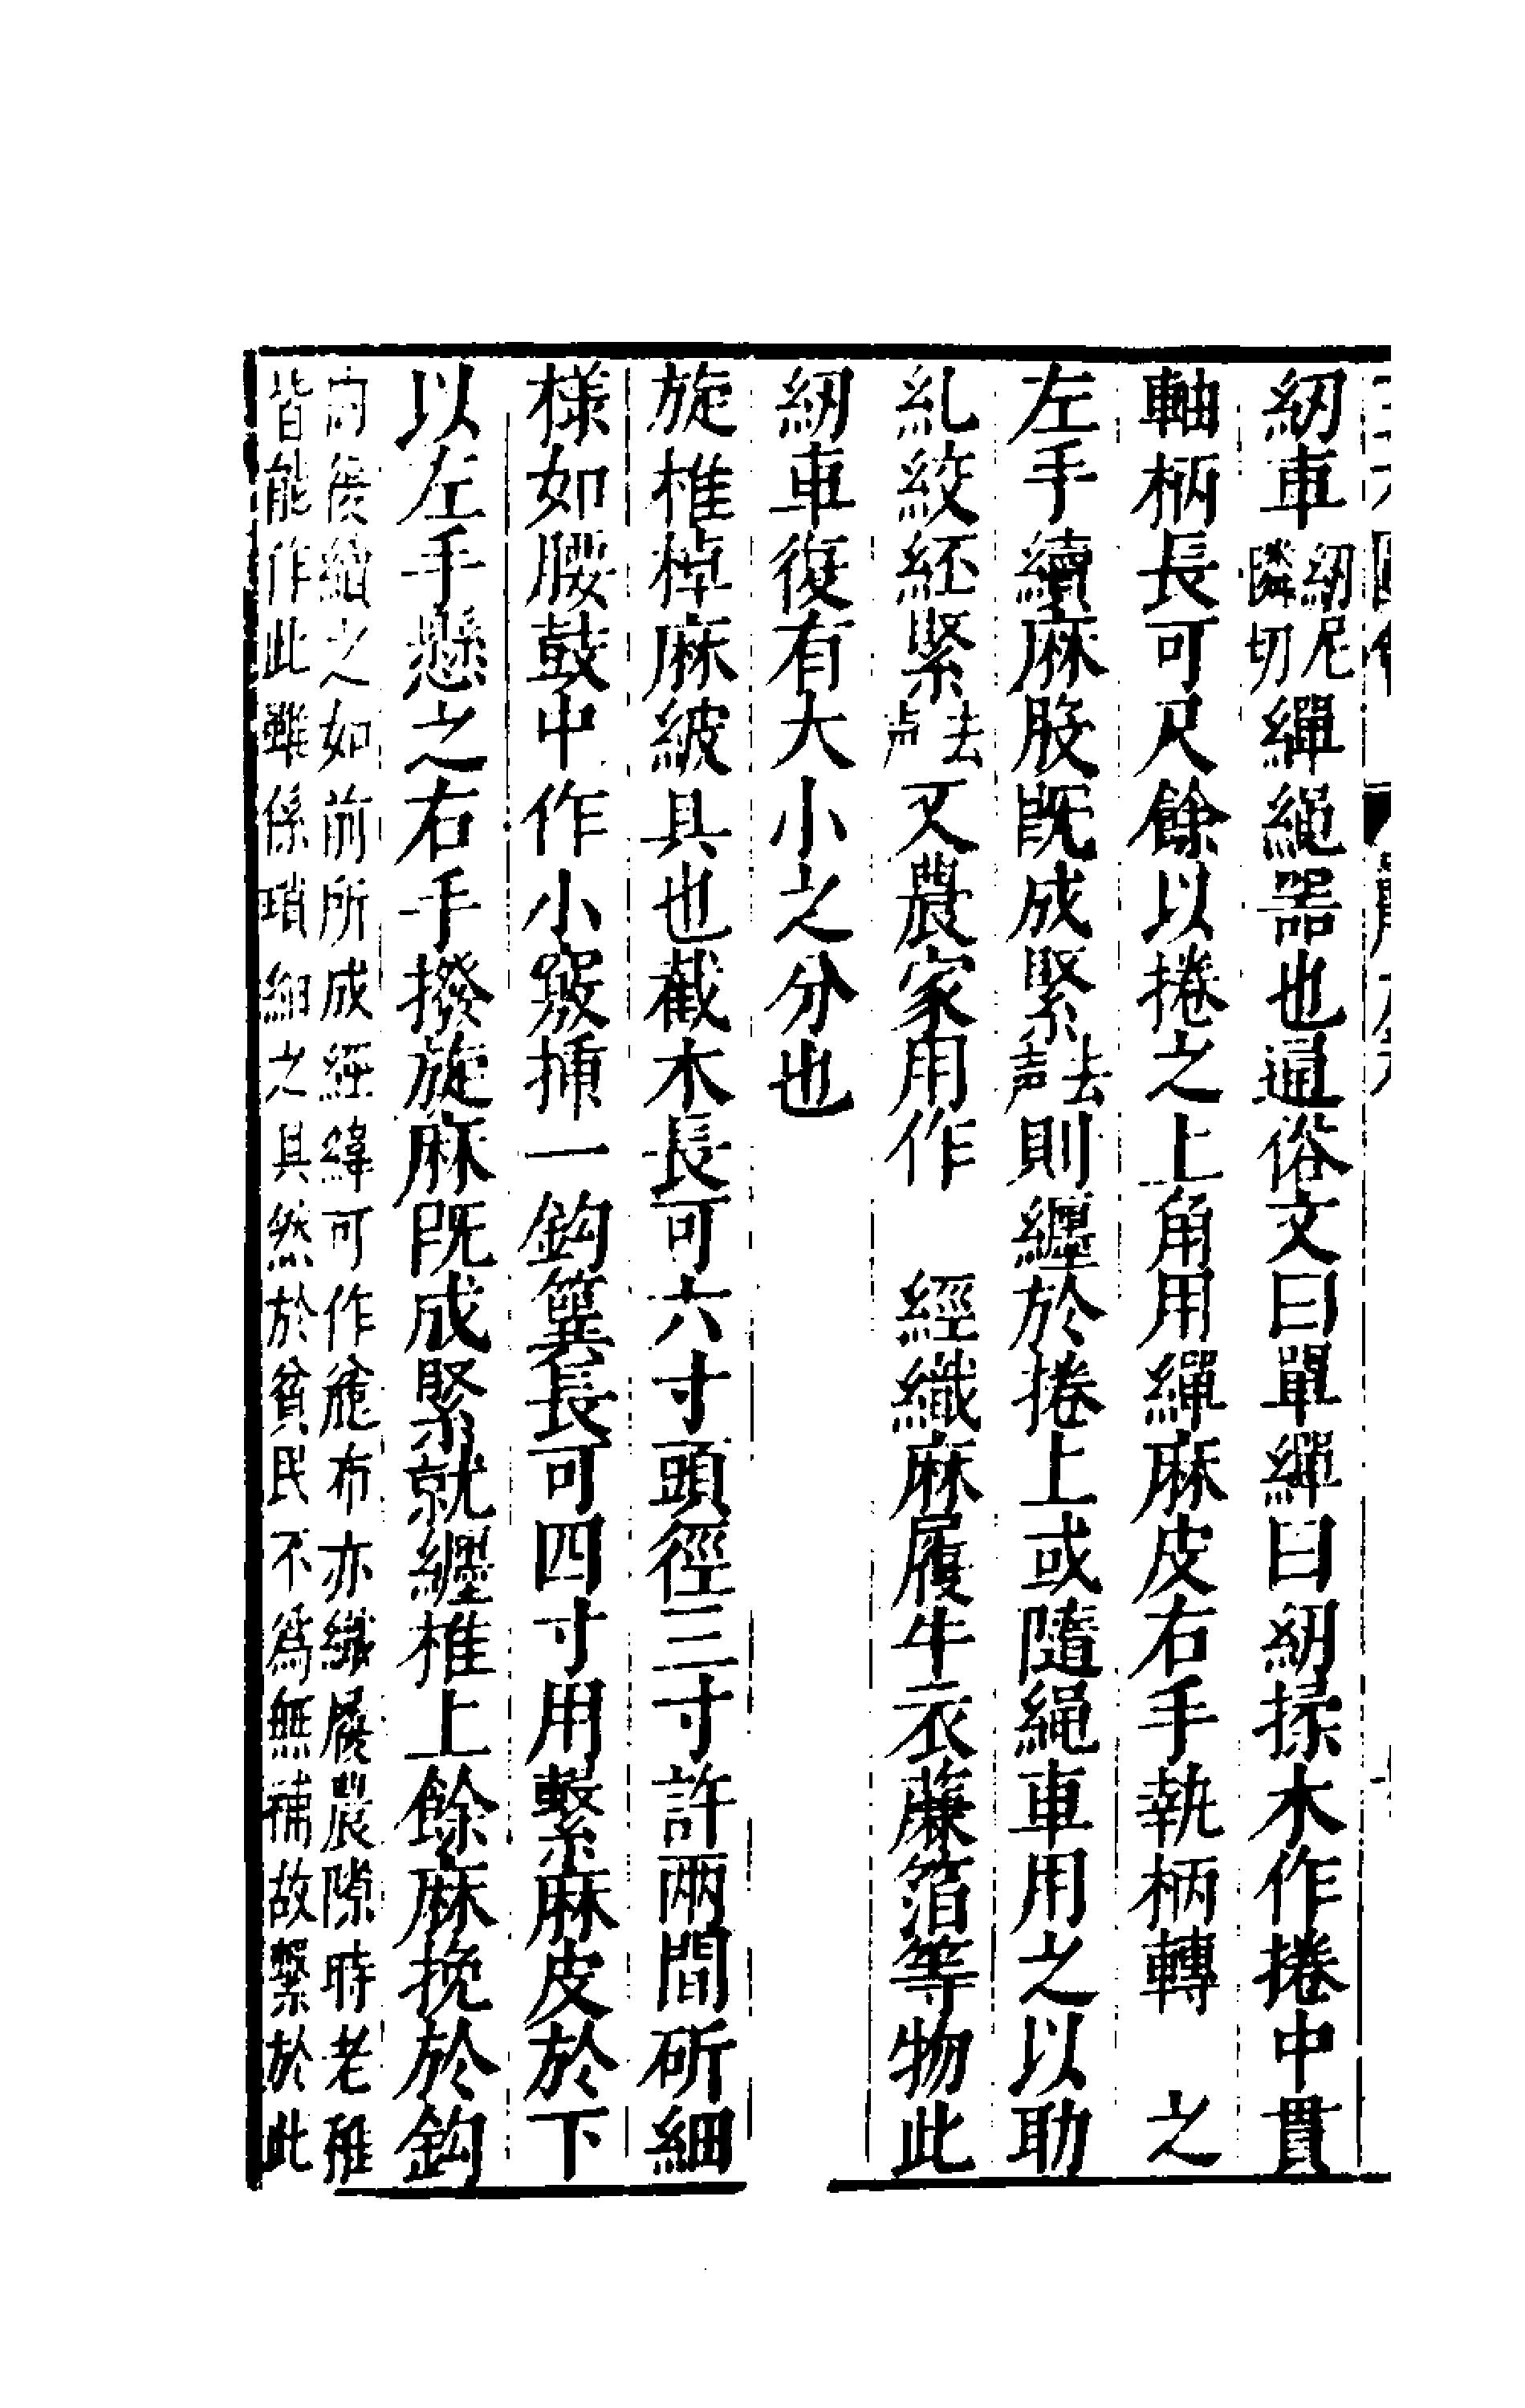 紉車紉尼
隣切繟繩器也通俗文曰單繟曰紉揉木作捲中貫
軸柄長可尺餘以捲之上角用繟麻皮右手執柄轉之
左手續麻股既成緊去
声則纒於捲上或隨繩車用之以助
糺絞紝緊去
声又農家用作經織麻履牛衣蔗箔等物此
紉車復有大小之分也
旋椎棹麻紴具也截木長可六寸頭徑三寸許兩間斫細
様如腰鼓中作小竅揷一鈎簨長可四寸用繫麻皮於下
以左手懸之右手撥旋麻既成緊就纒椎上餘麻挽於鈎
之如前所成經緯可作麄布亦織屨農隙時老稚
皆能作此雖係瑣細之具然於貧民不爲無補故繫於此